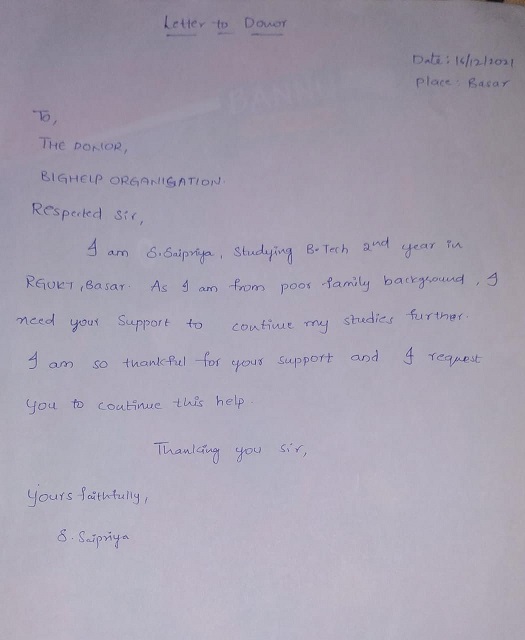 Letter to Donor
Date: 16/12/2021
Place: Basar
To,
THE DONOR,
BIGHELP ORGANISATION.
Respected Sir,
I am S.Saipriya, Studying B.Tech 2nd year in
RGUKT, Basar. As I am from poor family background, I
need your Support to continue my studies further.
I am so thankful for your support and I request
you to continue this help.
Thanking you sir,
yours faithfully,
S. Saipriya